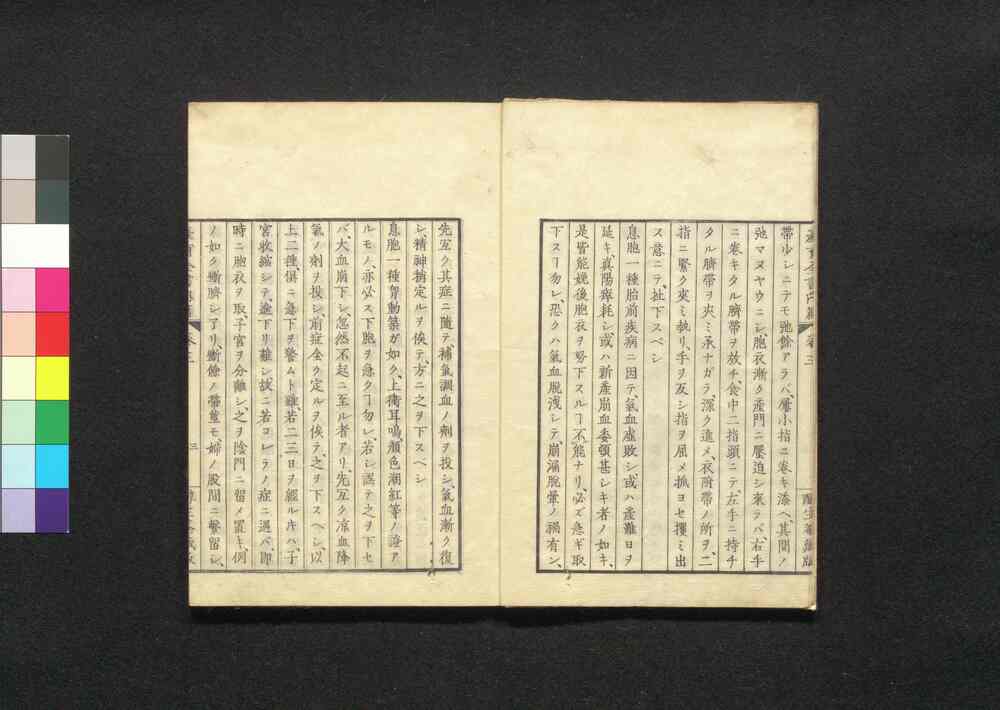 帶少シニテモ弛餘アラバ、屢小指ニ卷キ添ヘ、其間ノ
弛マヌヤウニシ、胞衣漸ク產門ニ壓迫シ來ラバ、右手
ニ卷キタル臍帶ヲ放チ、食中二指頭ニテ、左手ニ持チ
タル臍帶ヲ夾ミ承ナガラ、深ク進メ、衣附帶ノ所ヲ、二
指ニ緊ク夾ミ執リ、手ヲ反シ指ヲ屈メ抓ヨセ攫ミ出
ス意ニテ、扯下スベシ
息胞一種胎前疾病ニ因テ、氣血虛敗シ或ハ產難日ヲ
延キ、眞陽瘁耗シ、或ハ新產崩血委頓甚シキ者ノ如キ、
是皆能娩後胞衣ヲ努下スルヿ不能ナリ、必ズ急ギ取
下スヿ勿レ、恐クハ氣血脫洩シテ、崩漏脫暈ノ禍有ン、
先宐ク其症ニ隨テ、補氣調血ノ劑ヲ投シ、氣血漸ク復
シ、精神稍定ルヲ俟テ、方ニ之ヲ下スベシ
息胞一種胷動築ガ如ク、上衝耳鳴顏色潮紅等ノ證ア
ルモノ、亦必ス下胞ヲ急クヿ勿レ、若シ誤テ之ヲ下セ
バ、大血崩下シ、忽然不起ニ至ル者アリ、先宐ク凉血降
氣ノ劑ヲ投シ、前症全ク定ルヲ俟テ、之ヲ下スベシ、以
上二種、俱ニ急下ヲ警ムト雖、若二三日ヲ經ルキハ、子
宮收縮シテ、逾下リ難シ、故ニ若コレラノ症ニ遇バ、卽
時ニ胞衣ヲ取、子宮ヲ分離シ、之ヲ陰門ニ留メ置キ、例
ノ如ク斷臍シ了リ、斷餘ノ帶莖モ、婦ノ股間ニ繫留シ、
三